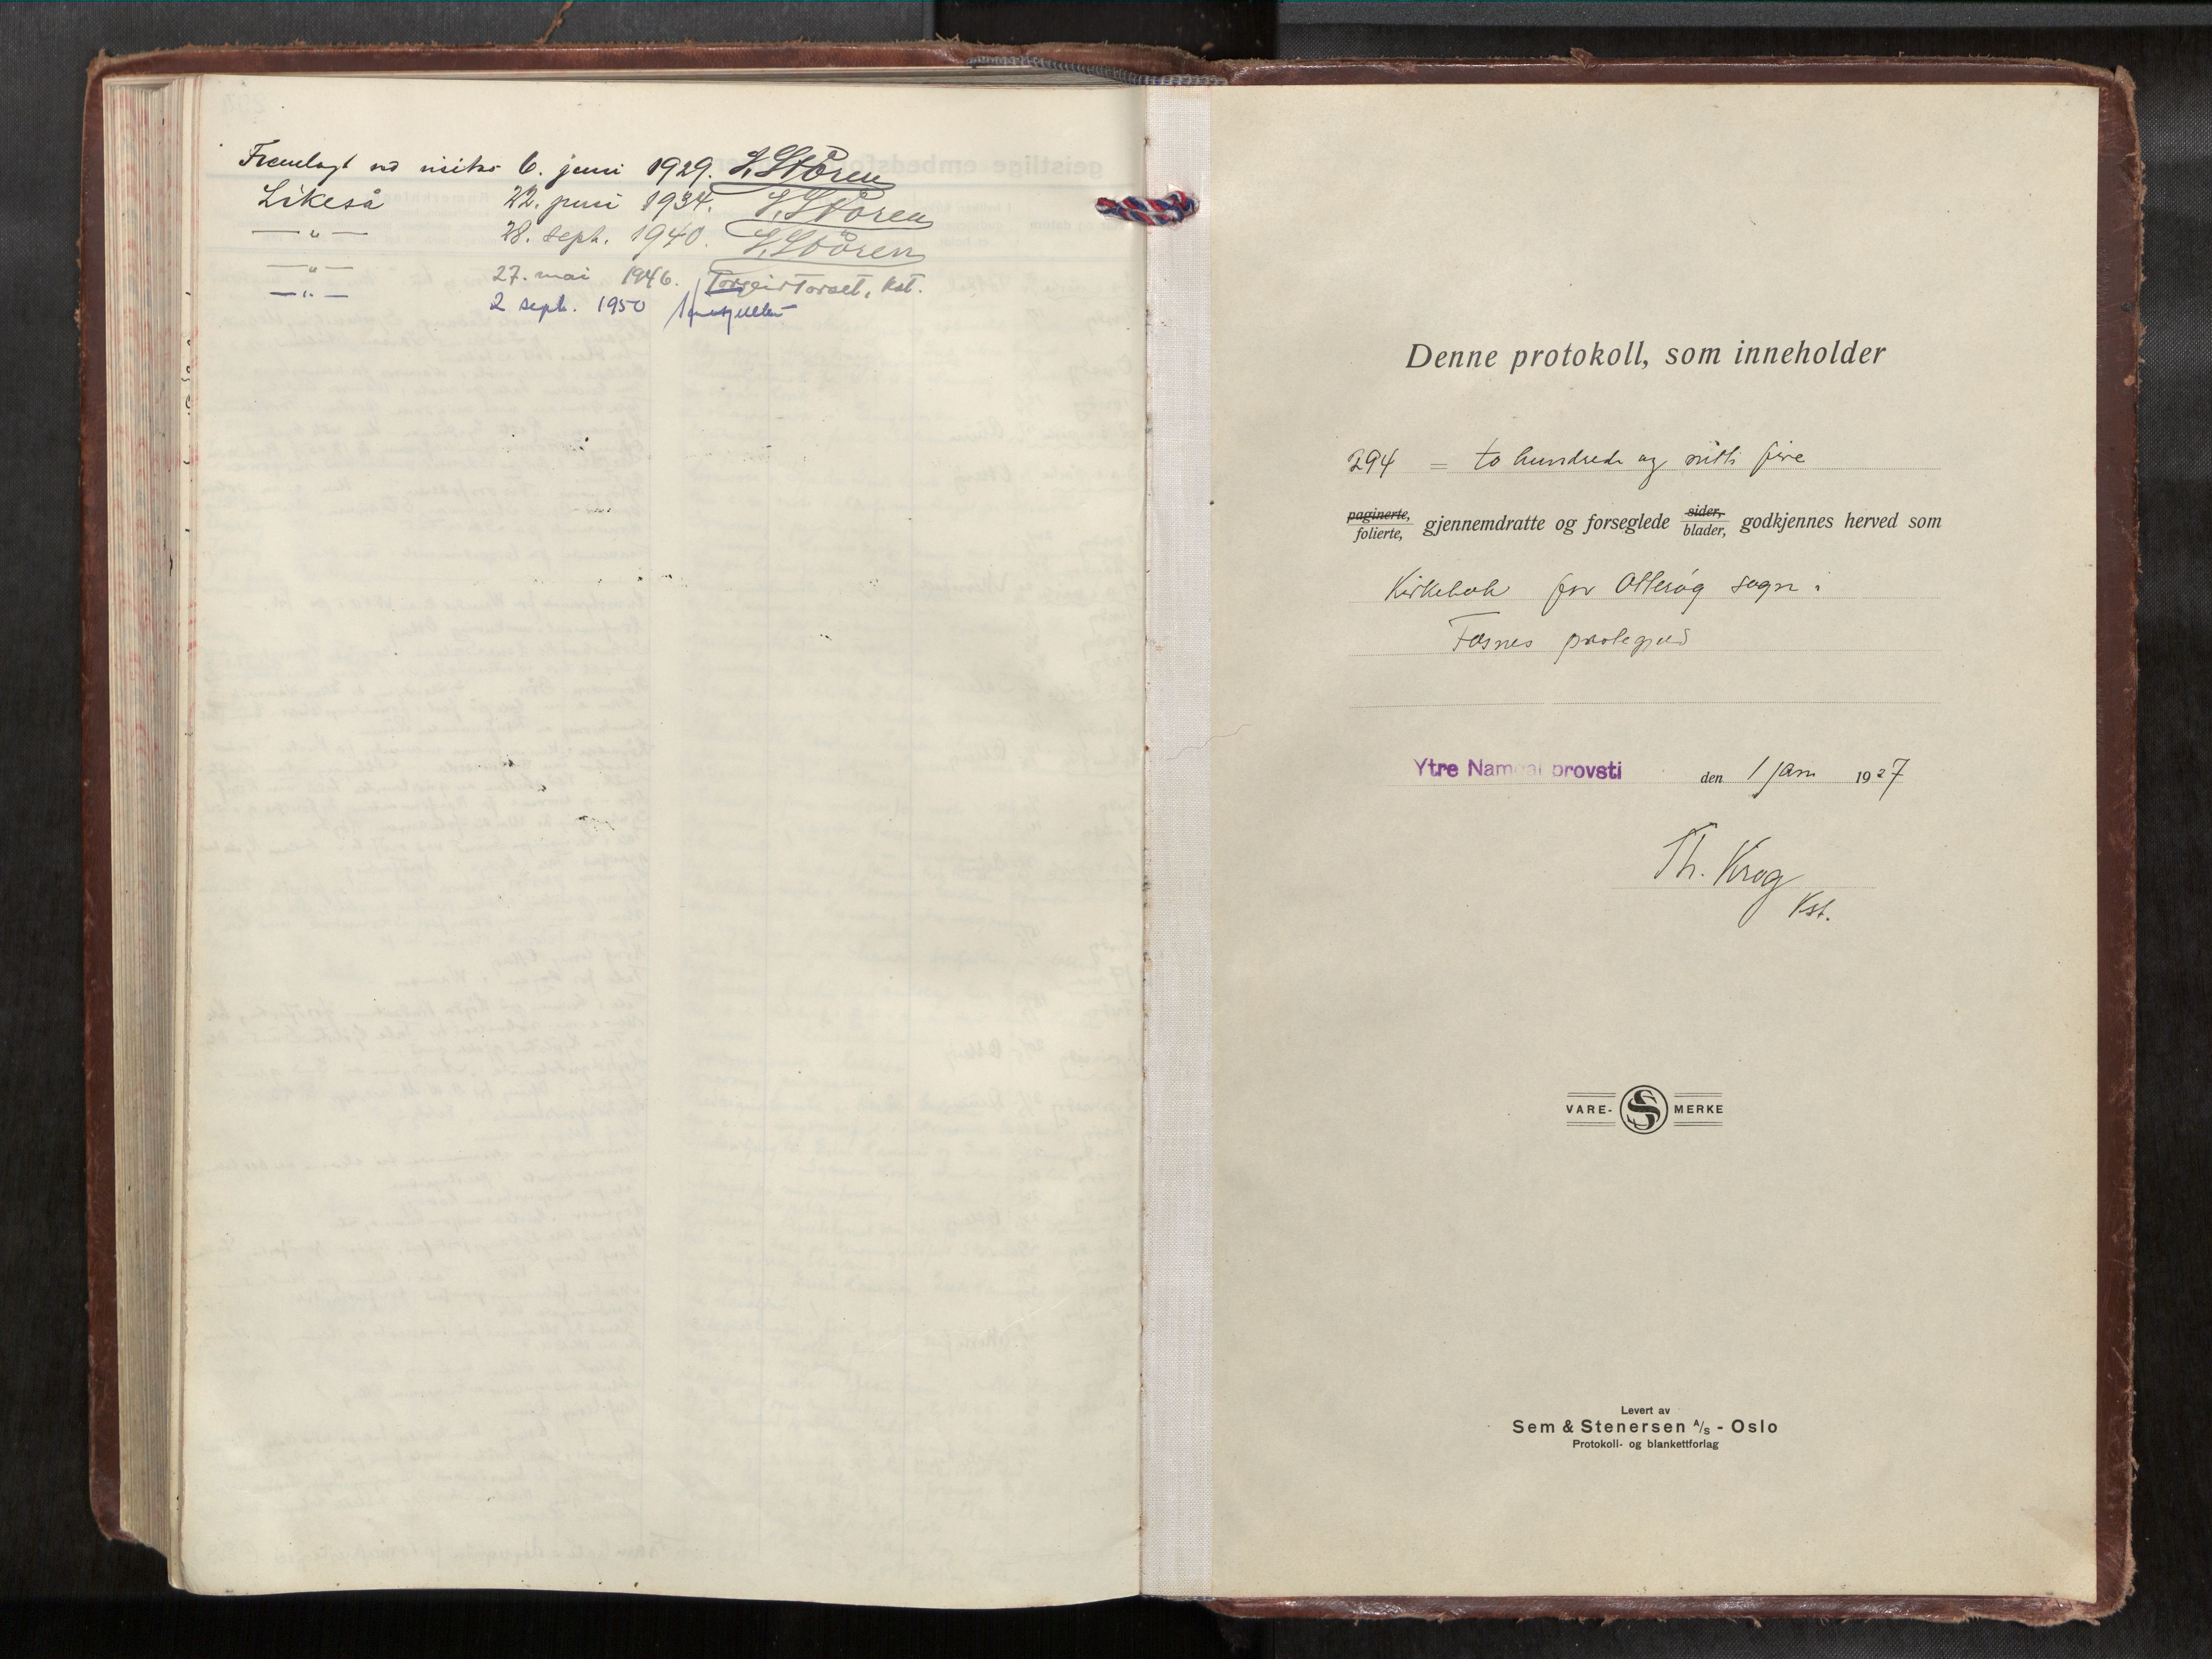 Fremlagt ved visitas 6. juni 1929. J. Støren
Likeså 22. juni 1934. J. Støren
— " — 28. sept. 1940. J. Støren
— " — 27. mai 1946. Torgeir Torset, kst.
— " — 2 sept. 1950
Denne protokoll, som inneholder
294 = to hundrede og nitti fire
paginerte, folierte, gjennemdratte og forseglede sider, blader, godkjennes herved som
Kirkebok for Otterøy sogn i
Fosnes prestegjeld
Ytre Namdal provsti den 1 jan 1927
Th. Krog
Kst.
VARE- S MERKE
Levert av
Sem & Stenersen A/S - Oslo
Protokoll- og blankettforlag